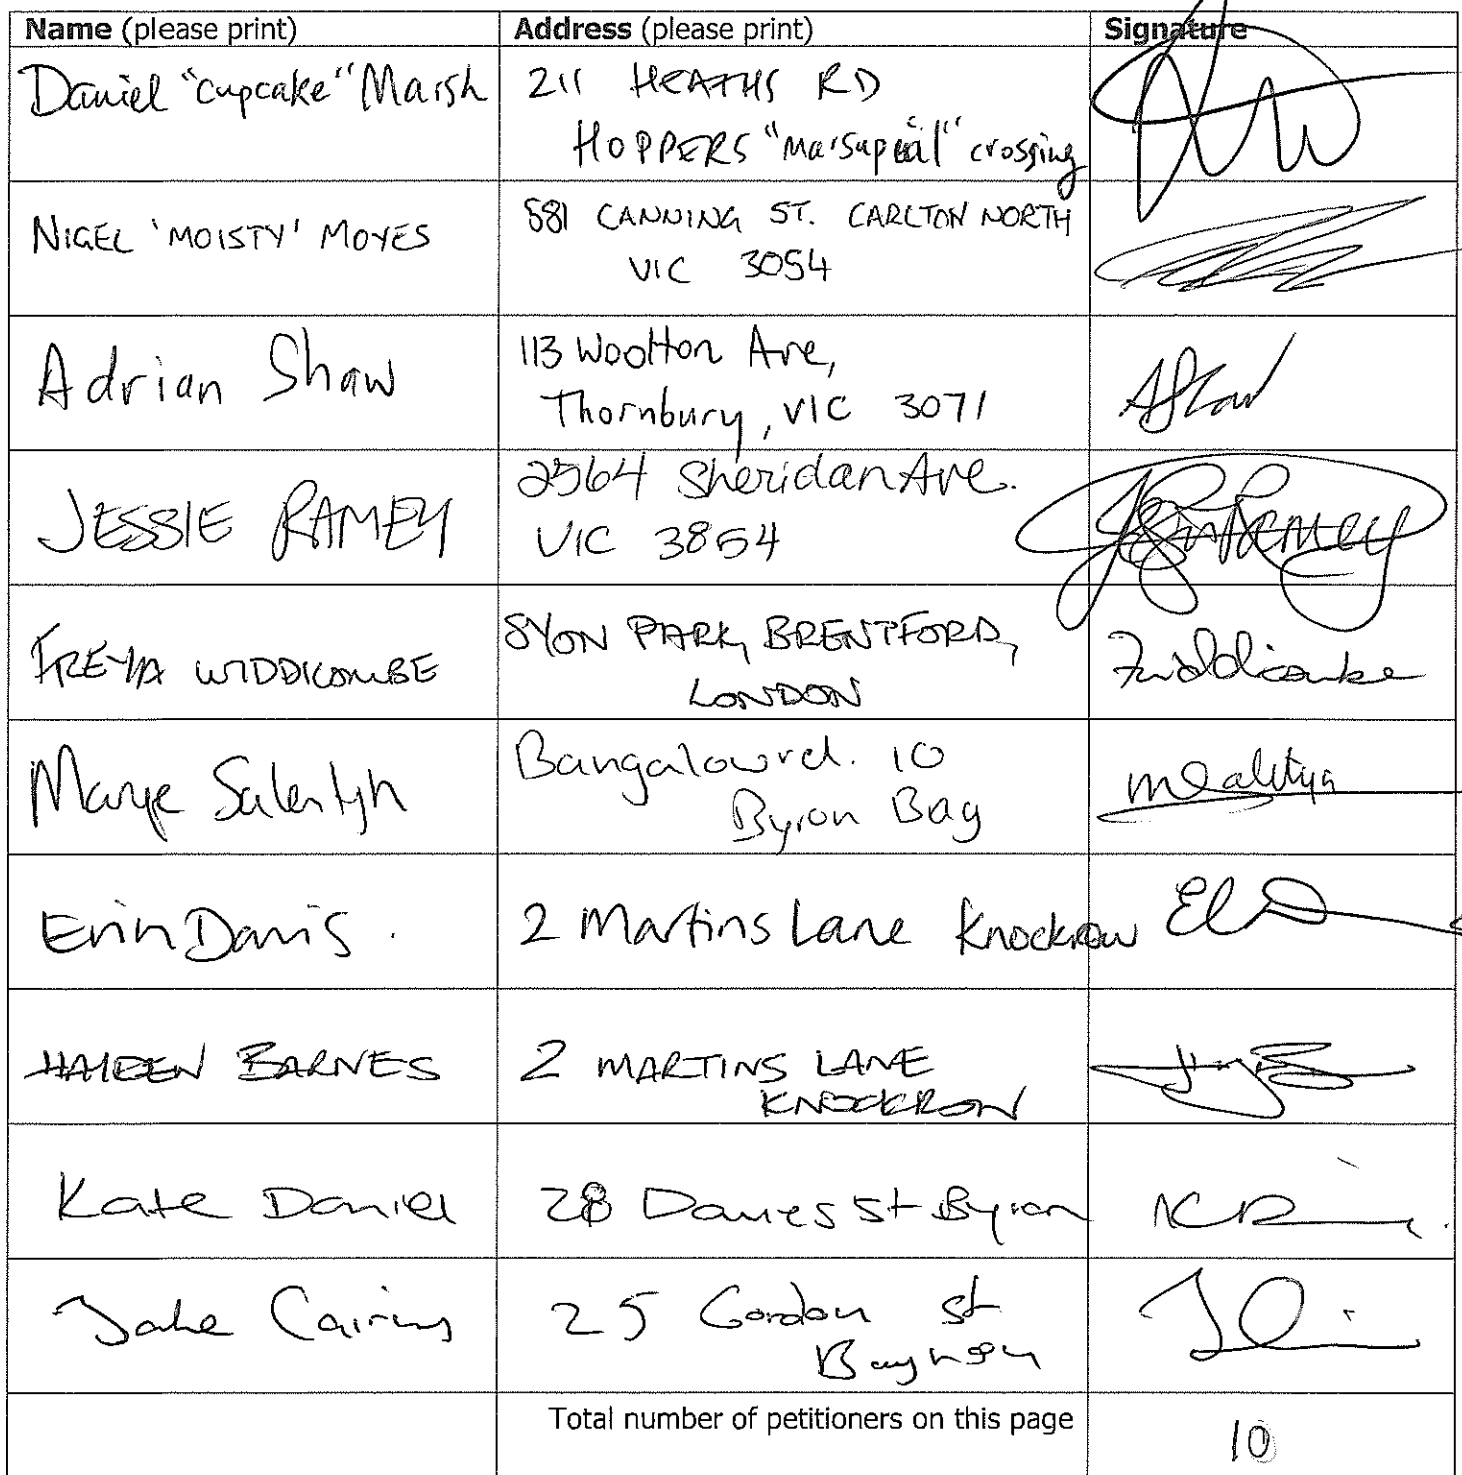 Name (please print) Address (please print) Signature
Daniel "Cupcake" Marsh 211 HEATHS RD
HOPPERS "Marsupial" crossing
NIGEL 'MOISTY' MOYES 581 CANNING ST. CARLTON NORTH
VIC 3054
Adrian Shaw 113 Wootton Ave,
Thornbury, VIC 3071
AShaw
JESSIE RAMEY 2564 Sheridan Ave.
VIC 3854
FREYA WIDDICOMBE SYON PARK, BRENTFORD,
LONDON
FWiddicombe
Bangalow rd. 10
Byron Bay
Erin Davis. 2 Martins Lane Knockrow
HAIDEN BARNES 2 MARTINS LANE
KNOCKROW
Kate Daniel 28 St Byron
Jake 25 Gordon St
Total number of petitioners on this page 10